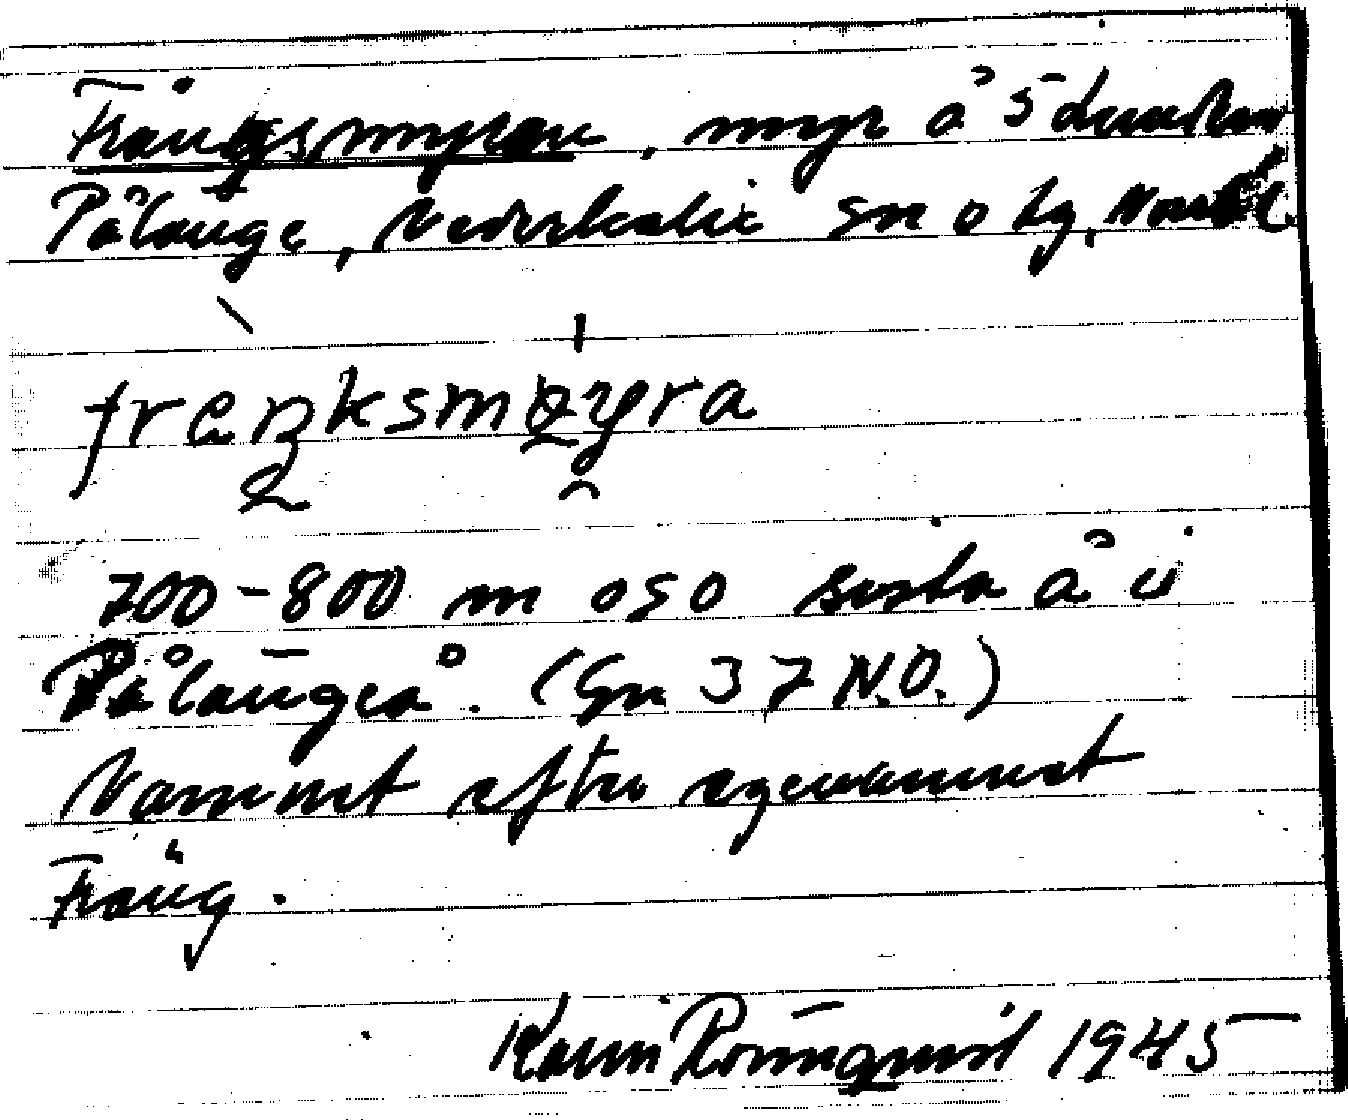 Frängsmyran, myr å S delen
Pålänge, Nederkalix sn o tg, Norrb.
frenksmøyra
700-800 m OSO sista å i
Pålängeå. (Gn 37 N.O.)
Namnet efter ägonamnet
Fräng.
Karin Rönnqvist 1945